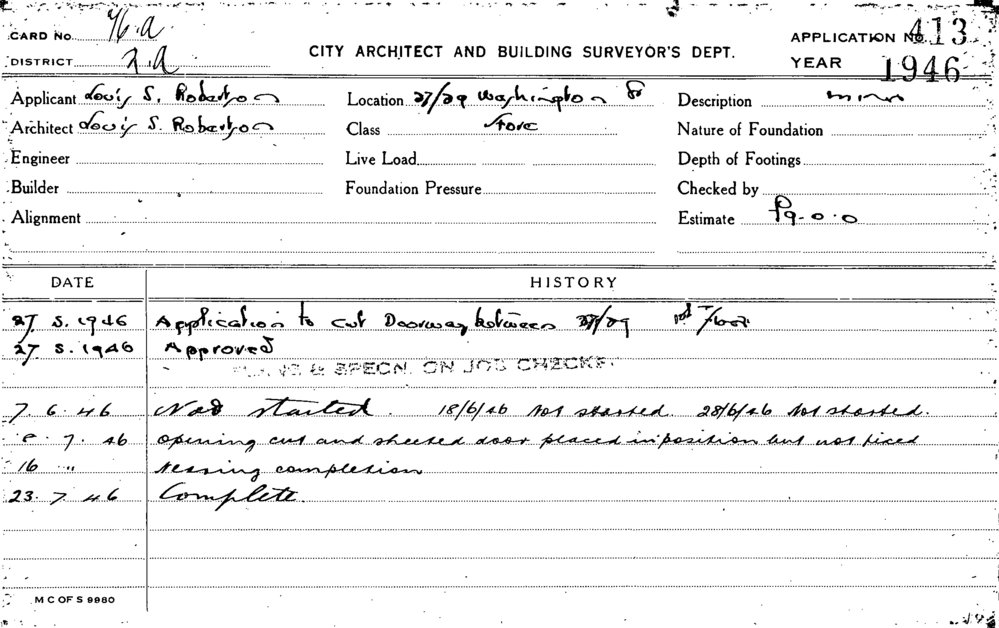 CARD NO. 76.A
DISTRICT 2.A
CITY ARCHITECT AND BUILDING SURVEYOR'S DEPT.
APPLICATION No. 413
YEAR 1946
Applicant Louis S. Robertson Location 27/29 Washington St Description minor
Architect Louis S. Robertson Class Store Nature of Foundation
Engineer Live Load Depth of Footings
Builder Foundation Pressure Checked by
Alignment Estimate £9-0-0
DATE HISTORY
27. 5. 1946 Application to cut Doorway between 27/29 1st Floor
27. 5. 1946 Approved
PLANS & SPECN. ON JOB CHECKED.
7. 6. 46 Not started. 18/6/46 Not started. 28/6/46 Not started.
7. 46 opening cut and sheeted door placed in position but not fixed
16 " Nearing completion
23. 7. 46 Complete
M C OF S 9980